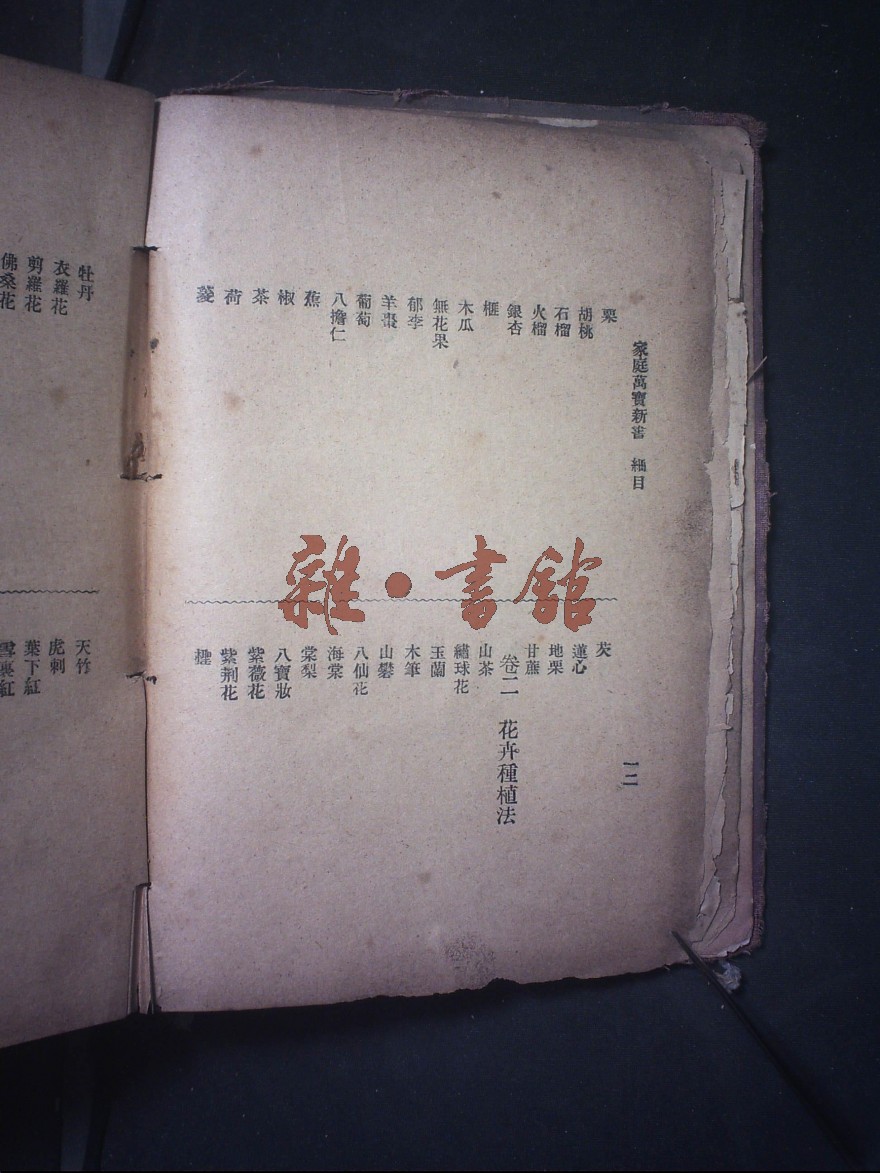 家庭萬寶新書 細目
一二
栗
胡桃
石榴
火榴
銀杏
榧
木瓜
無花果
郁李
羊棗
葡萄
八擔仁
蕉
椒
茶
荷
菱
芡
蓮心
地栗
甘蔗
卷二 花卉種植法
山茶
繡球花
玉蘭
木筆
山礬
八仙花
海棠
棠梨
八寶妝
紫薇花
紫荆花
牡丹
衣羅花
剪羅花
佛桑花
天竹
虎刺
葉下紅
雪裏紅
雜·書館